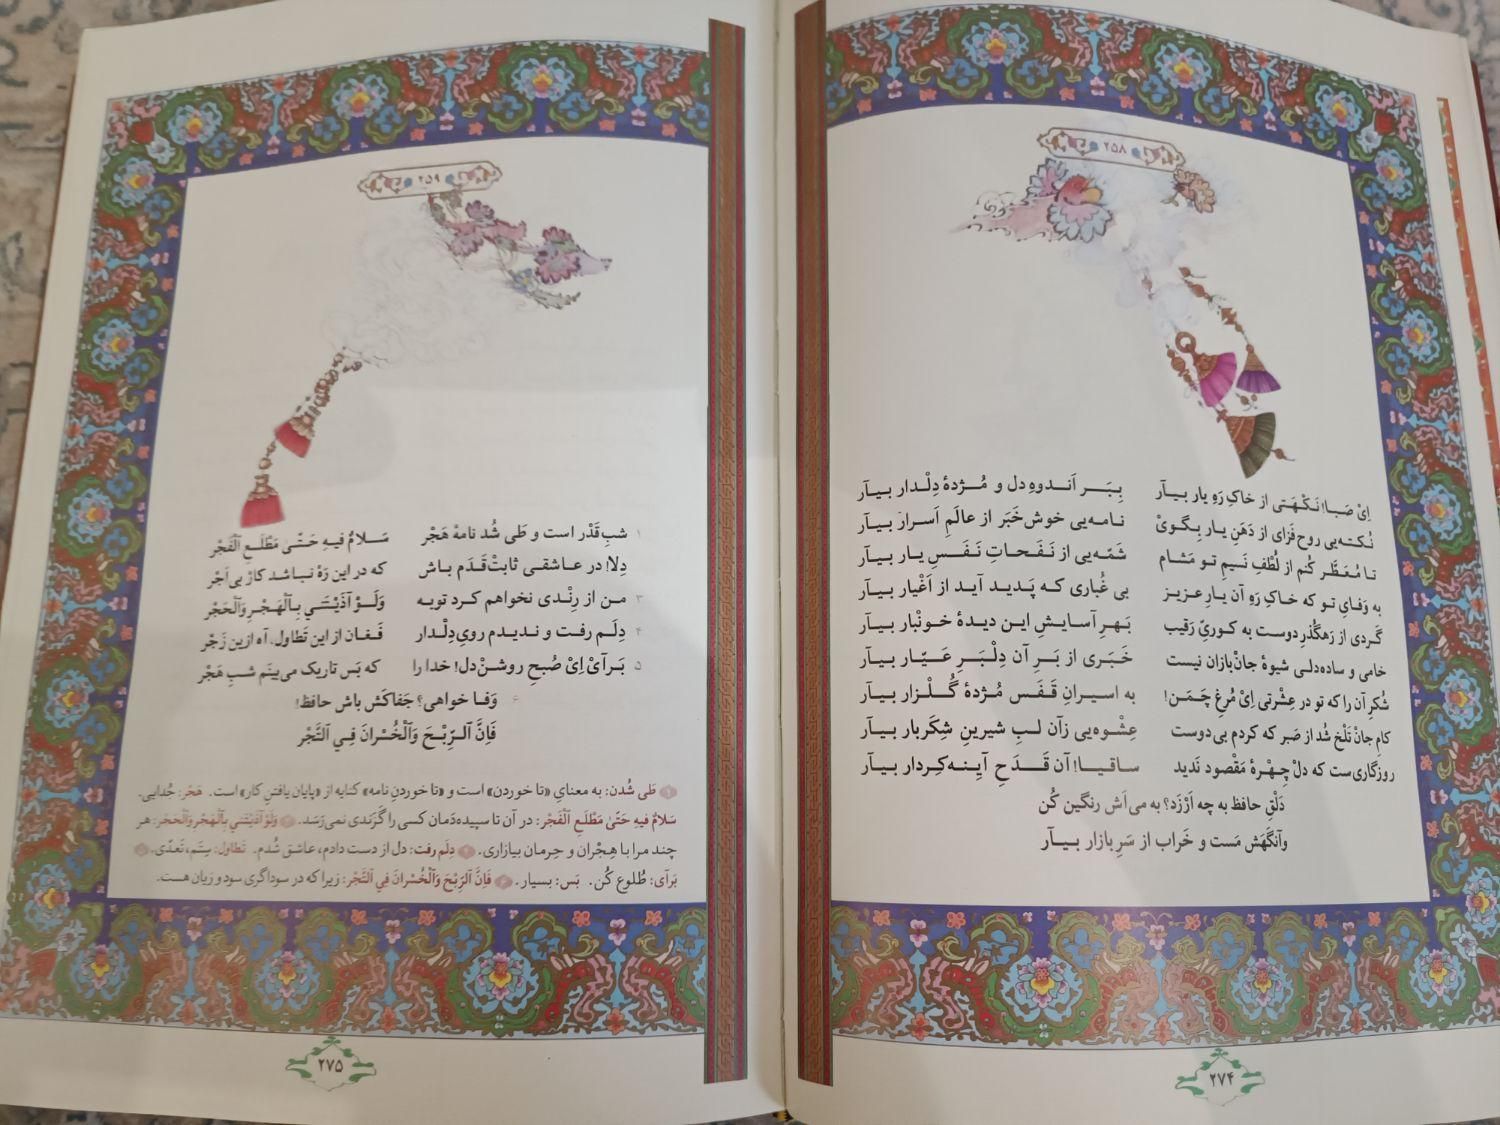 ۲۵۸
اِیْ صَبا! نَکْهَتی از خاکِ رَهِ یار بیـآر بِبَـر اَندوهِ دل و مُژدهٔ دِلْدار بیـآر
نُکته‌یی روح‌فَزای از دَهَنِ یـار بِگـویْ نامه‌یی خوش‌خَبَر از عالَمِ اَسرار بیـآر
تا مُعَطَّر کُنم از لُطْفِ نَسیمِ تو مَشام شَمّه‌یی از نَـفَحاتِ نَـفَسِ یار بیـآر
به وَفایِ تو که خاکِ رَهِ آن یارِ عزیز بی غُباری که پَدیـد آید از اَغْیار بیـآر
گَردی از رَهگُذرِ دوست به کوریِّ رَقیب بَـهرِ آسایشِ این دیدهٔ خونْبار بیـآر
خامی و ساده‌دلـی شیوهٔ جانْ‌بازان نیست خَبَری از بَـرِ آن دِلْبَرِ عَیّـار بیـآر
شُکرِ آن را که تو در عِشْرتی اِیْ مُرغِ چَمَـن! به اسیـرانِ قَـفَس مُژدهٔ گُلْـزار بیـآر
کامِ جانْ تَلخ شُد از صَبر که کردم بی‌دوست عِشْوه‌یی زآن لبِ شیرینِ شِکَربار بیـآر
روزگاری‌ست که دلْ چِهْرهٔ مَقْصود نَدید ساقیـا! آن قَـدَحِ آیِنـه‌کِـردار بیـآر
دَلْقِ حافظ به چه اَرْزَد؟ به می‌اَش رنگین کُن
وآنگَهَش مَست و خَراب از سَرِ بازار بیـآر
۲۷۴
۲۵۹
۱ شبِ قَدْر است و طَی شُد نامهٔ هَجْر سَلامٌ فیهِ حَتّیٰ مَطْلَعِ الْفَجْر
دِلا! در عـاشقـی ثابتْ‌قَـدَم باش که در این رَهْ نبـاشد کارْ بی‌اَجْر
۳ من از رِنْدی نخواهم کرد توبه وَلَوْ آذَیْتَنی بِٱلْهَجْرِ وَٱلْحَجْر
۴ دِلَم رفت و ندیدم رویِ دِلْدار فَـغان از این تَطاول، آه ازین زَجْر
۵ بَـرآی اِیْ صُبحِ روشنْ‌دل! خدا را که بَس تاریک می‌بینَم شبِ هَجْر
۶ وَفـا خواهی؟ جَفاکَش باش حافظ!
فَاِنَّ ٱلـرِّبْـحَ وَٱلْخُسْرانَ فِي ٱلتَّجْر
۱ طَی شُدن: به معنایِ «تا خوردن» است و «تا خوردنِ نامه» کنایه از «پایان یافتنِ کار» است. هَجْر: جُدایی.
سَلامٌ فیهِ حَتّیٰ مَطْلَعِ ٱلْفَجْر: در آن تا سپیده‌دَمان کسی را گَزَندی نمی‌رَسَد. ۳ وَلَوْ آذَیْتَنی بِٱلْهَجْرِ وَٱلْحَجْر: هر
چند مرا با هِجْران و حِرمان بیازاری. ۴ دِلَم رفت: دل از دست دادم، عاشق شُدم. تَطاول: سِتَم، تَعدّی. ۵
بَرآی: طُلوع کُن. بَس: بسیار. ۶ فَاِنَّ ٱلرِّبْحَ وَٱلْخُسْرانَ فِي ٱلتَّجْر: زیرا که در سوداگری سود و زیان هست.
۲۷۵